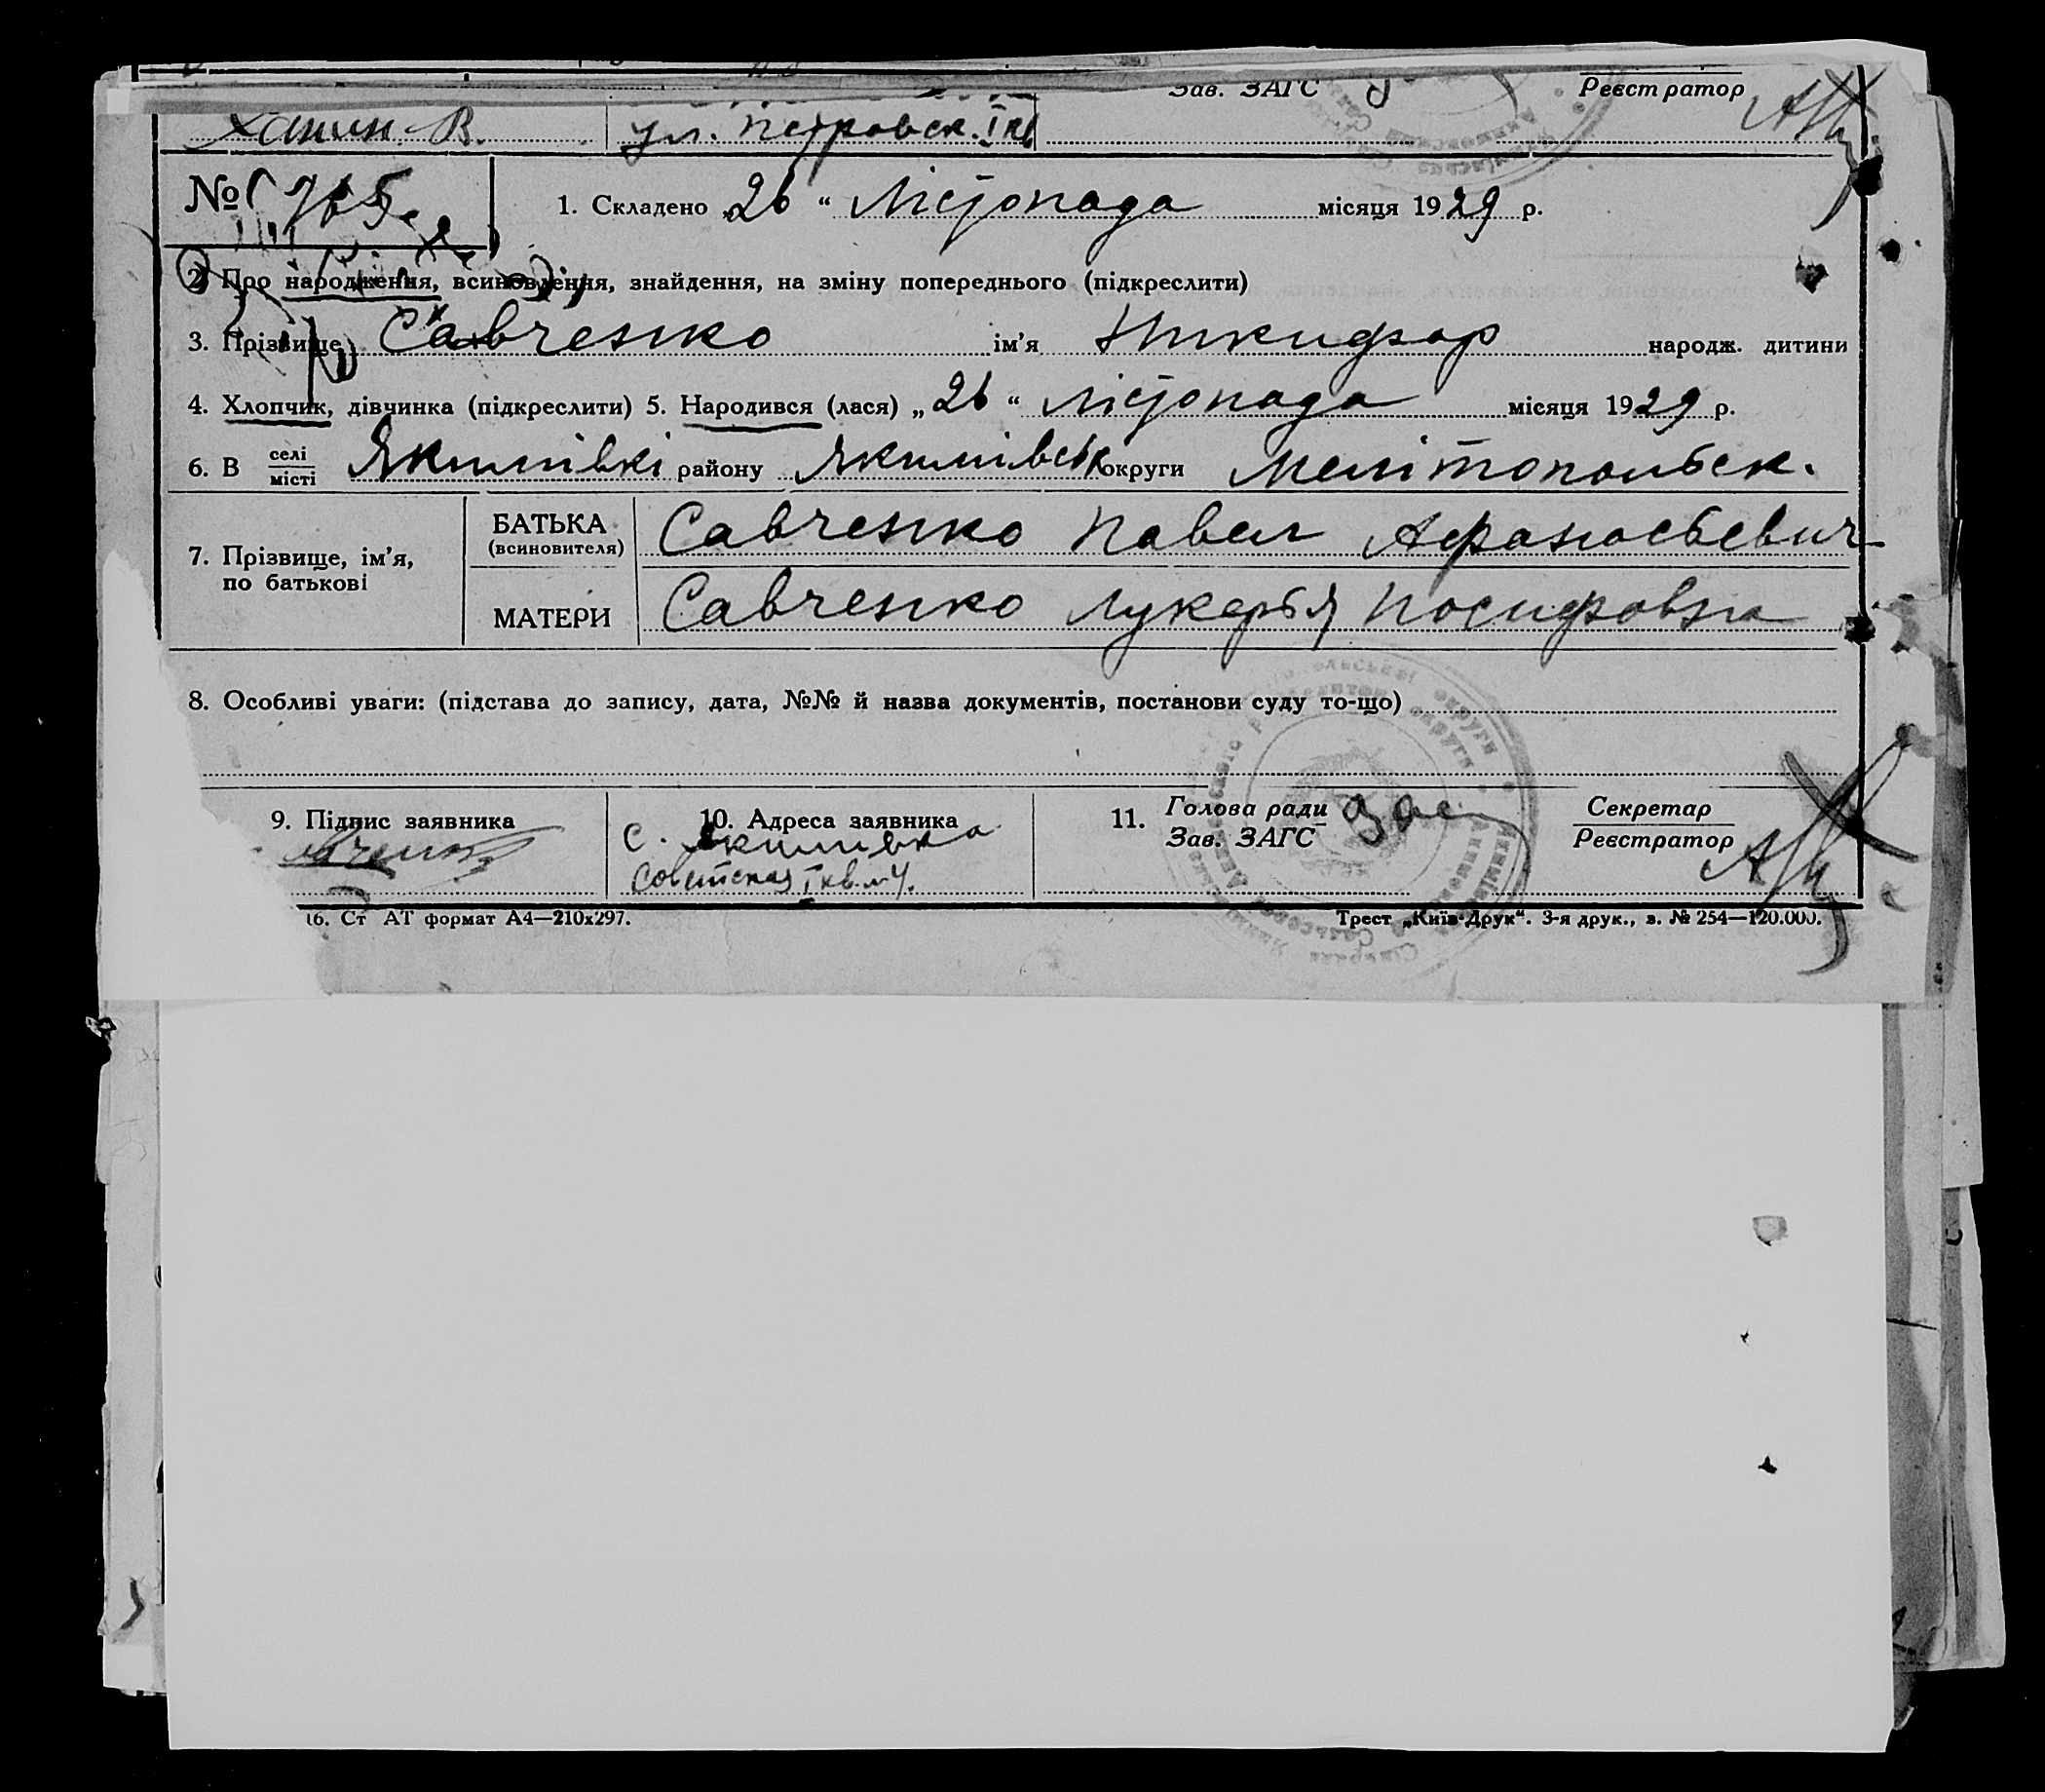 Зав. ЗАГС Реєстратор
Ханин В. ул. Петровск. I кв
№ 765 1. Складено „26“ Лістопада місяця 1929 р.
2. Про народження, всиновлення, знайдення, на зміну попереднього (підкреслити)
3. Прізвище Савченко ім'я Никифор народж. дитини
4. Хлопчик, дівчинка (підкреслити) 5. Народився (лася) „26“ лістопада місяця 1929 р.
6. В селі місті Якимівкі району Якимівськ округи Мелітопольск.
7. Прізвище, ім'я, по батькові
БАТЬКА (всиновителя) Савченко Павел Афанасьевич
МАТЕРИ Савченко Лукерья Иосифовна
8. Особливі уваги: (підстава до запису, дата, №№ й назва документів, постанови суду то-що)
9. Підпис заявника 10. Адреса заявника 11. Голова ради Секретар
Зав. ЗАГС Реєстратор
с. Якимівка
Советская I кв. № 4.
16. Ст АТ формат А4—210х297. Трест „Київ-Друк“. 3-я друк., з. № 254—120.000.